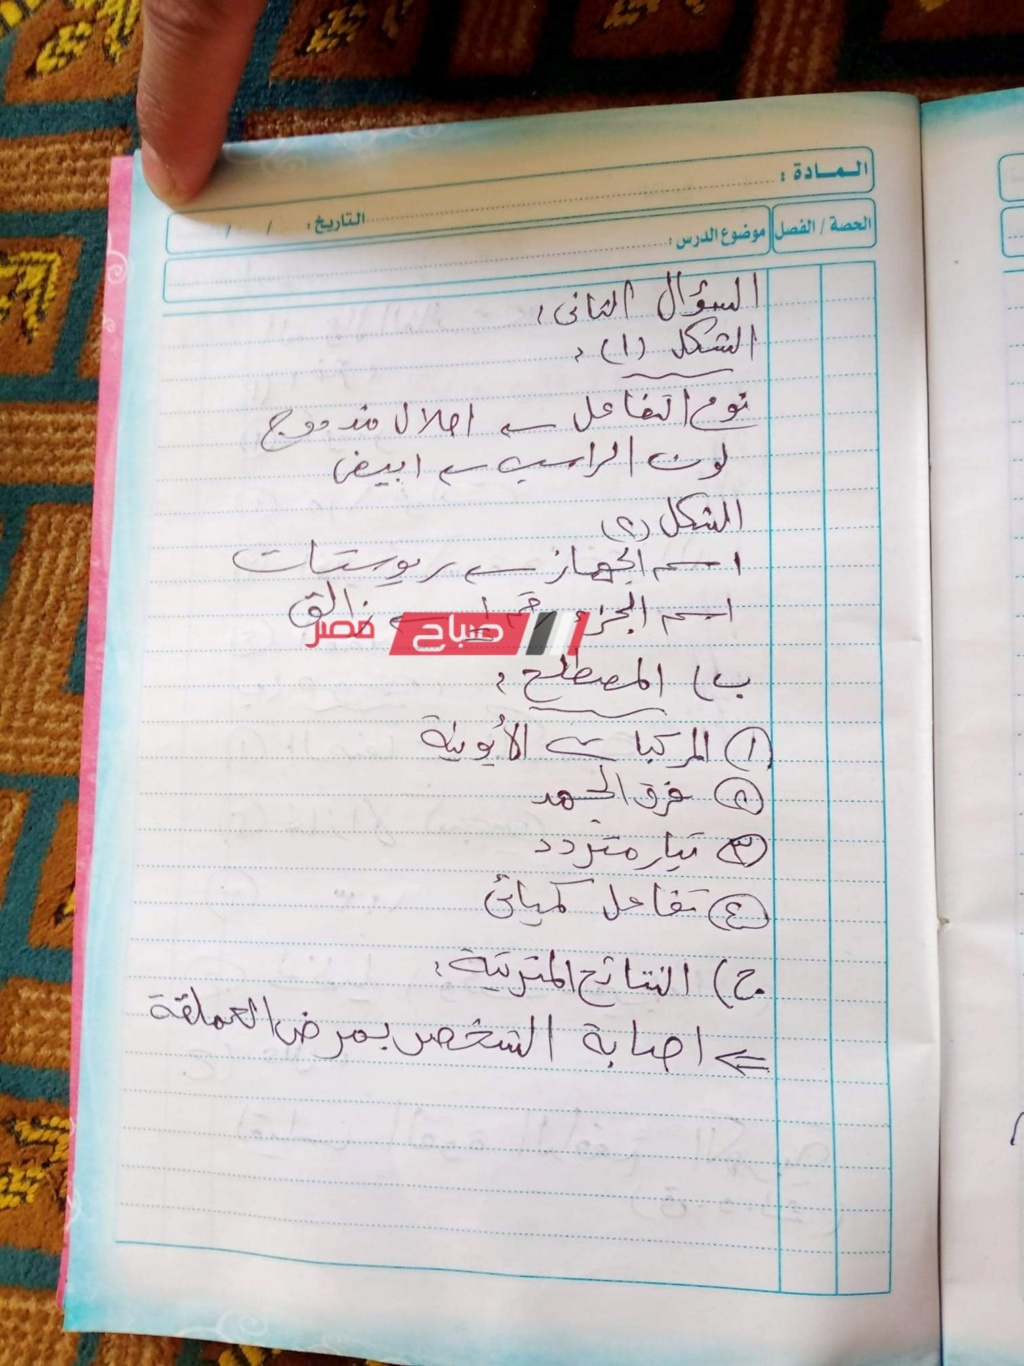 المادة :
التاريخ : / /
الحصة / الفصل
موضوع الدرس :
السؤال الثانى :
الشكل (١) :
نوع التفاعل ← احلال مزدوج
لون الراسب ← ابيض
الشكل (٢)
اسم الجهاز ← ريوستات
اسم الجزء رقم ١ ← زالق
صباح مصر
ب) المصطلح :
١ المركبات الأيونية
٢ فرق الجهد
٣ تيار متردد
٤ تفاعل كميائى
ج) النتائج المترتبة :
⇐ اصابة الشخص بمرض العملقة